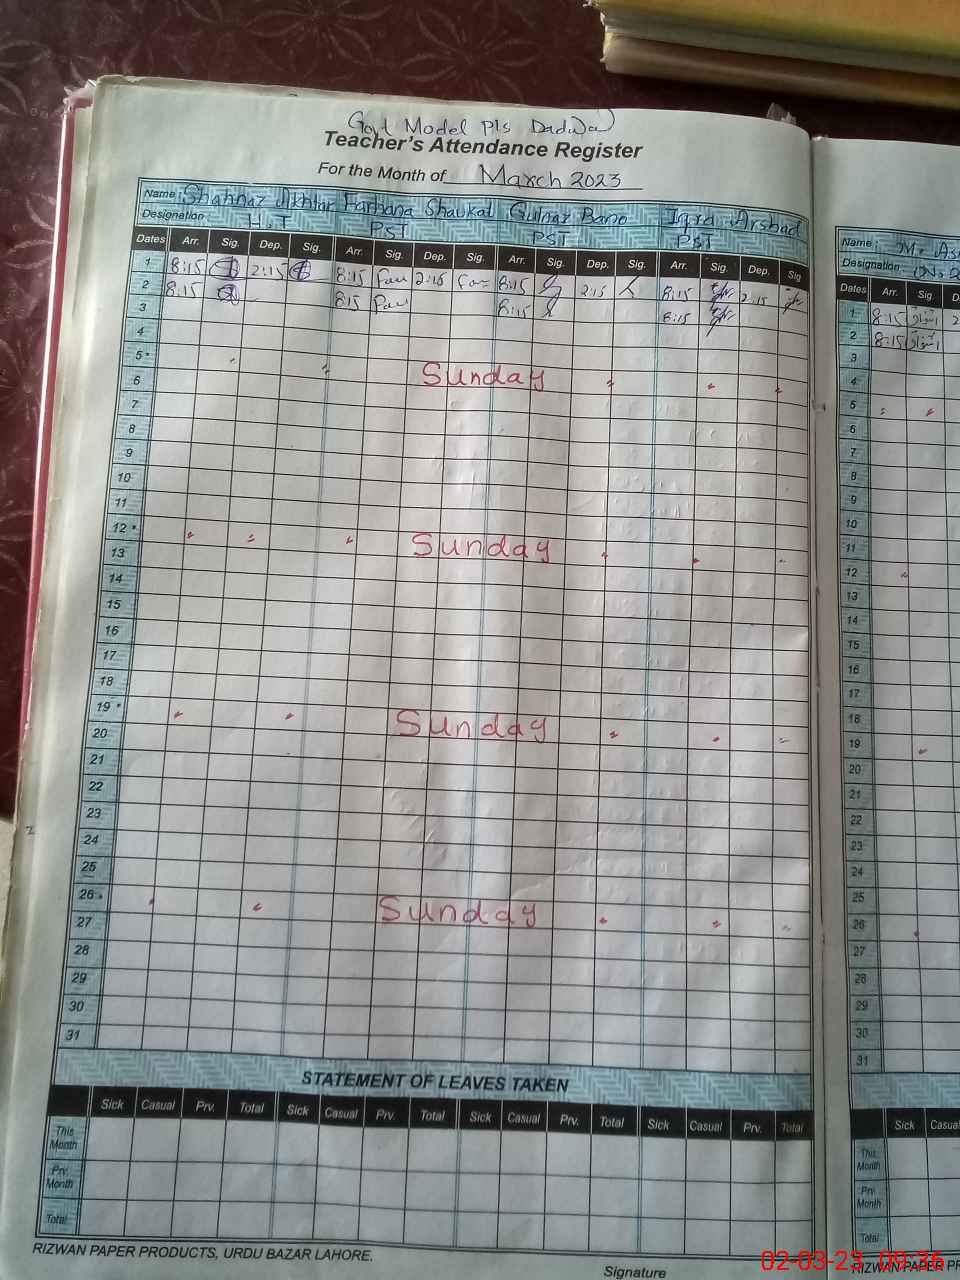 Govt Model P/s Dadwal
Teacher's Attendance Register
For the Month of March 2023
Name: Shahnaz Akhtar Farhana Shaukat Gulnaz Bano Iqra Arshad
Designation: H.T PST PST PST
Dates Arr. Sig. Dep. Sig. Arr. Sig. Dep. Sig. Arr. Sig. Dep. Sig. Arr. Sig. Dep. Sig
1 8:15 2:15 8:15 Far 2:15 Far 8:15 2:15 8:15 2:15
2 8:15 8:15 Far 8:15 8:15
3
4
5
6 Sunday
7
8
9
10
11
12
13 Sunday
14
15
16
17
18
19
20 Sunday
21
22
23
24
25
26
27 Sunday
28
29
30
31
STATEMENT OF LEAVES TAKEN
Sick Casual Prv. Total Sick Casual Prv. Total Sick Casual Prv. Total Sick Casual Prv. Total
This Month
Prv. Month
Total
RIZWAN PAPER PRODUCTS, URDU BAZAR LAHORE.
Signature
Name: M.
Designation:
Dates Arr. Sig.
1 8:15
2 8:15
3
4
5
6
7
8
9
10
11
12
13
14
15
16
17
18
19
20
21
22
23
24
25
26
27
28
29
30
31
Sick Casual
This Month
Prv Month
Total
RIZWAN PAPER PR
02-03-23 09:36